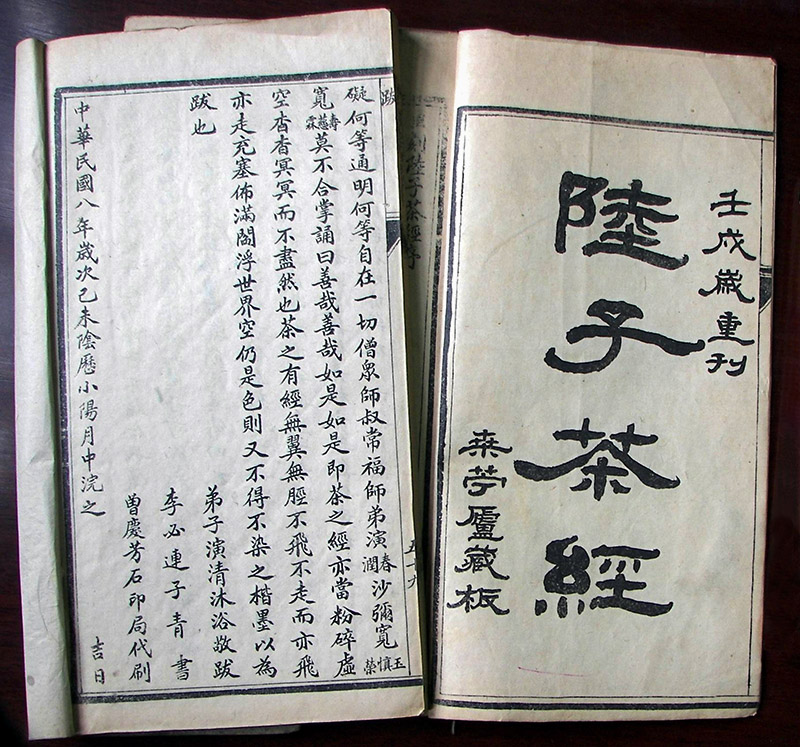 壬戌歲重刊
陸子茶經
桒苧廬藏板
陸子茶經序
跋
五十九
礙何等通明何等自在一切僧眾師叔常福師弟演春潤沙彌寬玉慎榮
寬壽慈霖莫不合掌誦曰善哉善哉如是如是即茶之經亦當粉碎虛
空杳杳冥冥而不盡然也茶之有經無翼無脛不飛不走而亦飛
亦走充塞佈滿閻浮世界空仍是色則又不得不染之楷墨以為
跋也
弟子演清沐浴敬跋
李必連子青書
曾慶芳石印局代刷
中華民國八年歲次己未陰歷小陽月中浣之吉日